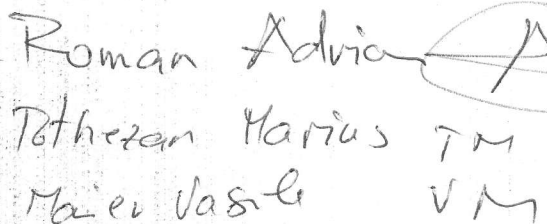 Roman Adrian
Pothezan Marius TM
Maier Vasile VM